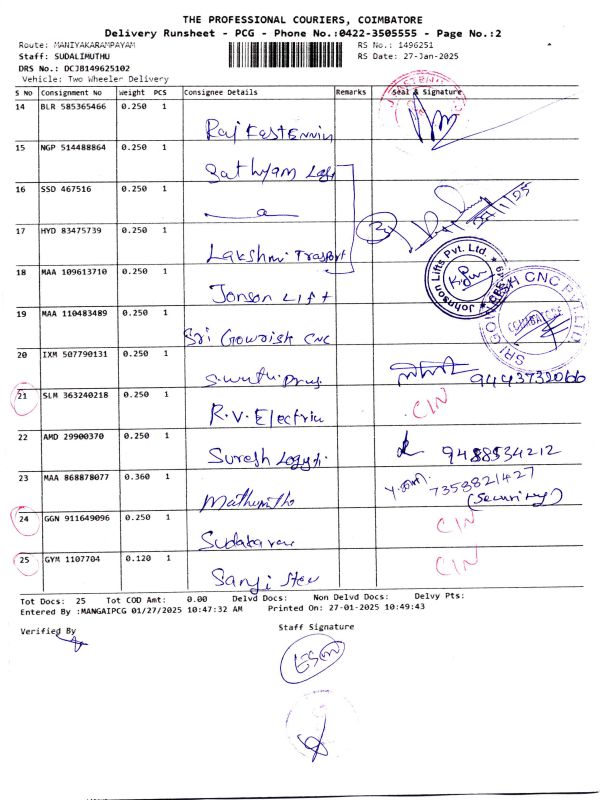 THE PROFESSIONAL COURIERS, COIMBATORE
Delivery Runsheet - PCG - Phone No.:0422-3505555 - Page No.:2
Route: MANIYAKARAMPAYAM RS No.: 1496251
Staff: SUDALIMUTHU RS Date: 27-Jan-2025
DRS No.: DCJ8149625102
Vehicle: Two Wheeler Delivery
S NO Consignment No Weight PCS Consignee Details Remarks Seal & Signature
14 BLR 585365466 0.250 1
15 NGP 514488864 0.250 1 Sathyam
16 SSD 467516 0.250 1
17 HYD 83475739 0.250 1 Lakshmi Trasport
18 MAA 109613710 0.250 1 Jonson Lift
Johnson Lifts Pvt. Ltd.
19 MAA 110483489 0.250 1 Sri Gowrish CNC
SRI GOWRISH CNC PVT.LTD.
COIMBATORE
20 IXM 507790131 0.250 1 9443732066
21 SLM 363240218 0.250 1 R.V. Electric CIN
22 AMD 29900370 0.250 1 Suresh 9488534212
23 MAA 868878077 0.360 1 7358821427
(Security)
24 GGN 911649096 0.250 1 CIN
25 GYM 1107704 0.120 1 CIN
Tot Docs: 25 Tot COD Amt: 0.00 Delvd Docs: Non Delvd Docs: Delvy Pts:
Entered By :MANGAIPCG 01/27/2025 10:47:32 AM Printed On: 27-01-2025 10:49:43
Verified By Staff Signature